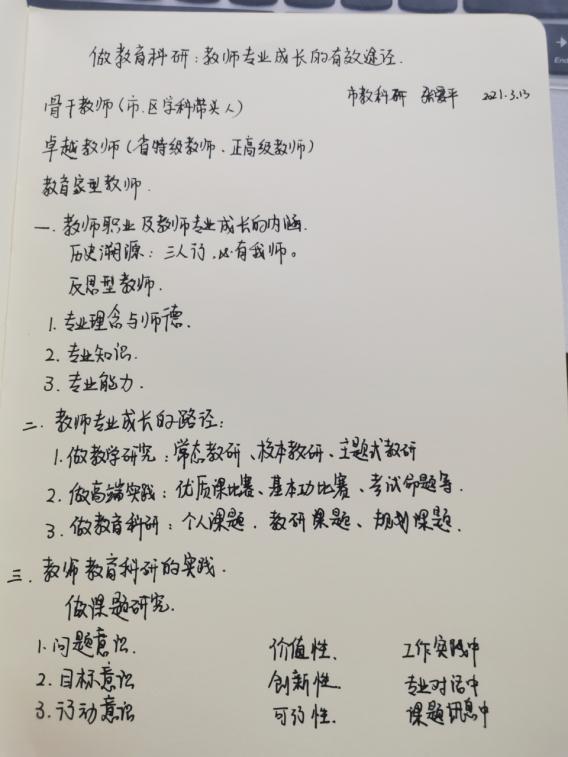 做教育科研:教师专业成长的有效途径.
市教科研 张爱平 2021.3.13
骨干教师(市.区学科带头人)
卓越教师(省特级教师.正高级教师)
教育家型教师.
一.教师职业及教师专业成长的内涵.
历史溯源:三人行,必有我师。
反思型教师.
1.专业理念与师德.
2.专业知识.
3.专业能力.
二.教师专业成长的路径:
1.做教学研究:常态教研、校本教研、主题式教研
2.做高端实践:优质课比赛、基本功比赛、考试命题等.
3.做教育科研:个人课题.教研课题、规划课题.
三.教师教育科研的实践.
做课题研究.
1.问题意识. 价值性. 工作实践中
2.目标意识 创新性. 专业对话中
3.行动意识 可行性. 课题讯息中
End